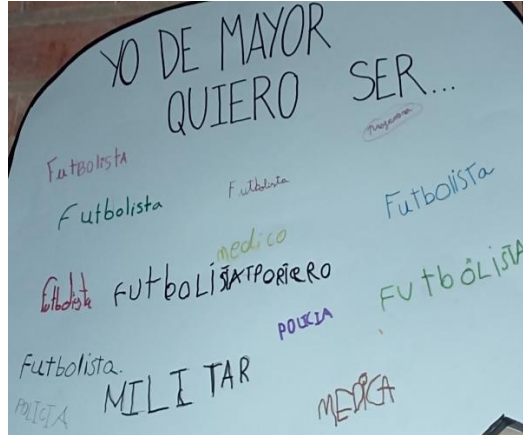 YO DE MAYOR
QUIERO SER...
FutBolistA
Futbolista
Futbolista
FutbolISTa
medico
Futbolista
FUtbOLiSTATPORTERO
FUtbOLiSTA
POLICIA
Futbolista.
MILITAR
POLICIA
MEDICA